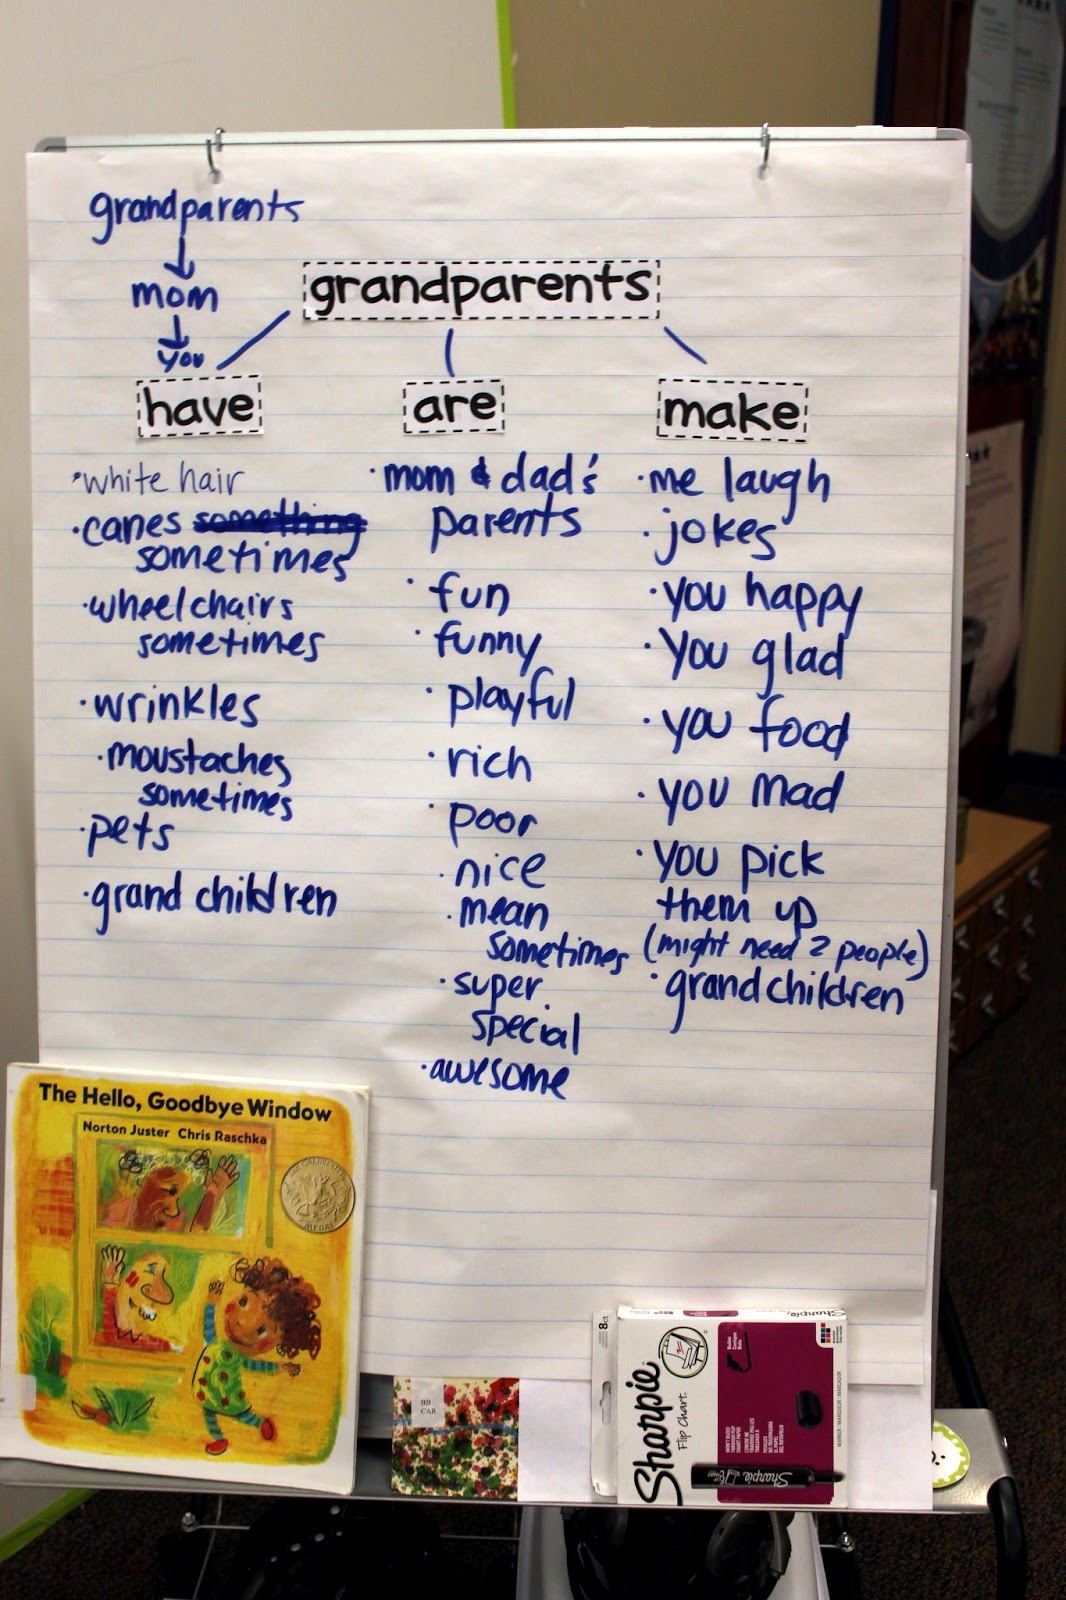 grandparents
mom
you
grandparents
have
are
make
·white hair
·canes something
sometimes
·wheelchairs
sometimes
·wrinkles
·moustaches
sometimes
·pets
·grand children
·mom & dad's
parents
·fun
·funny
·playful
·rich
·poor
·nice
·mean
sometimes
·super
special
·awesome
·me laugh
·jokes
·you happy
·you glad
·you food
·you mad
·you pick
them up
(might need 2 people)
·grandchildren
The Hello, Goodbye Window
Norton Juster Chris Raschka
MEDAL
BB
CAR
8ct
Sharpie
Flip Chart.
Sharpie
Sharpie